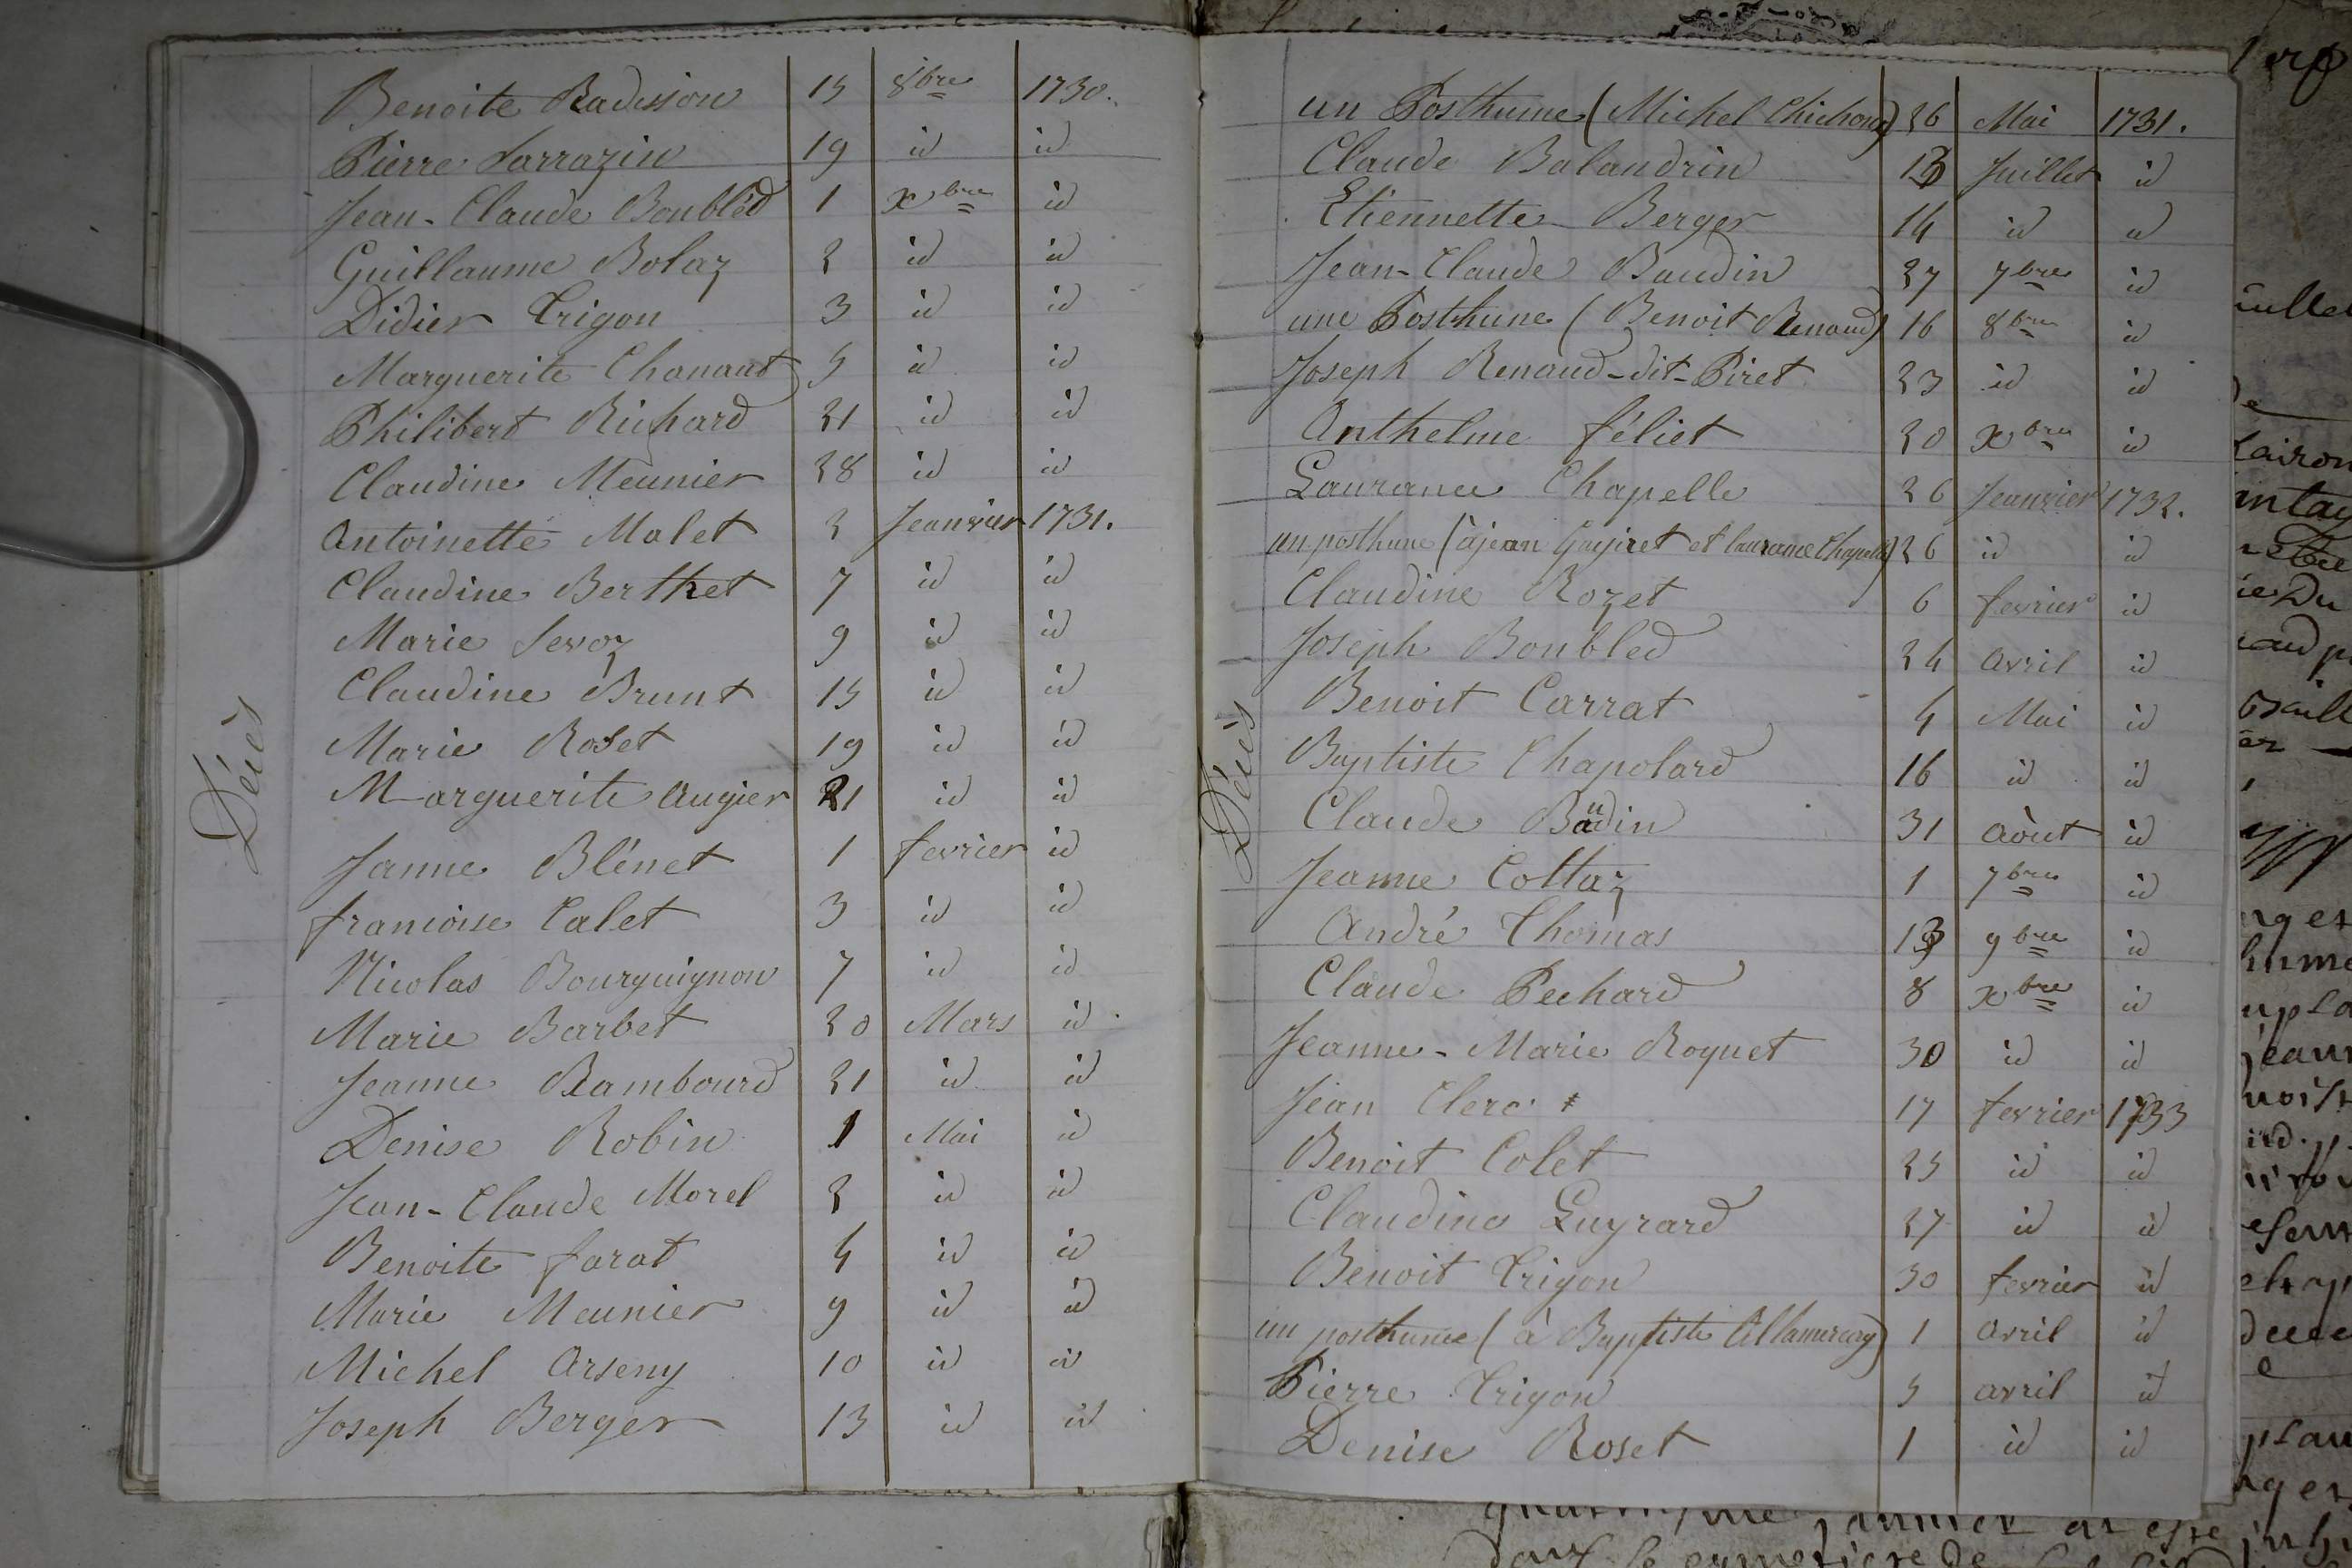 Décès
Benoite Radisson 15 8bre 1730.
Pierre Sarrazin 19 id id
Jean-Claude Boubled 1 xbre id
Guillaume Bolaz 2 id id
Didier Trigon 3 id id
Marguerite Chanant 5 id id
Philibert Richard 21 id id
Claudine Meunier 28 id id
Antoinette Malet 2 Jeanvier 1731.
Claudine Berthet 7 id id
Marie Sevoz 9 id id
Claudine Brunt 15 id id
Marie Roset 19 id id
Marguerite augier 21 id id
Janne Blénet 1 fevrier id
francoise Calet 3 id id
Nicolas Bourguignon 7 id id
Marie Barbet 20 Mars id
Jeanne Rambourd 21 id id
Denise Robin 1 Mai id
Jean-Claude Morel 2 id id
Benoite farat 4 id id
Marie Meunier 9 id id
Michel Arseny 10 id id
Joseph Berger 13 id id
Décès
un Posthume (Michel 26 Mai 1731.
Claude Balandrin 13 Juillet id
Etiennette Berger 14 id id
Jean-Claude Baudin 27 7bre id
une Posthume (Benoit Renaud) 16 8bre id
Joseph Renaud-dit-Piret 23 id id
Anthelme féliet 20 xbre id
Laurance Chapelle 26 Jeanvier 1732.
un posthume (à jean et laurance Chapelle) 26 id id
Claudine Rozet 6 fevrier id
Joseph Boubled 24 avril id
Benoit Carrat 4 Mai id
Baptiste Chapolard 16 id id
Claude Baudin 31 aòut id
Jeanne Cottaz 1 7bre id
André Thomas 13 9bre id
Claude Pechard 8 xbre id
Jeanne-Marie Roquet 30 id id
Jean Clerc 17 fevrier 1733
Benoit Colet 25 id id
Claudine Guyrard 27 id id
Benoit Trigon 30 fevrier id
un posthume (à Baptiste 1 avril id
Pierre Trigon 5 avril id
Denise Roset 1 id id